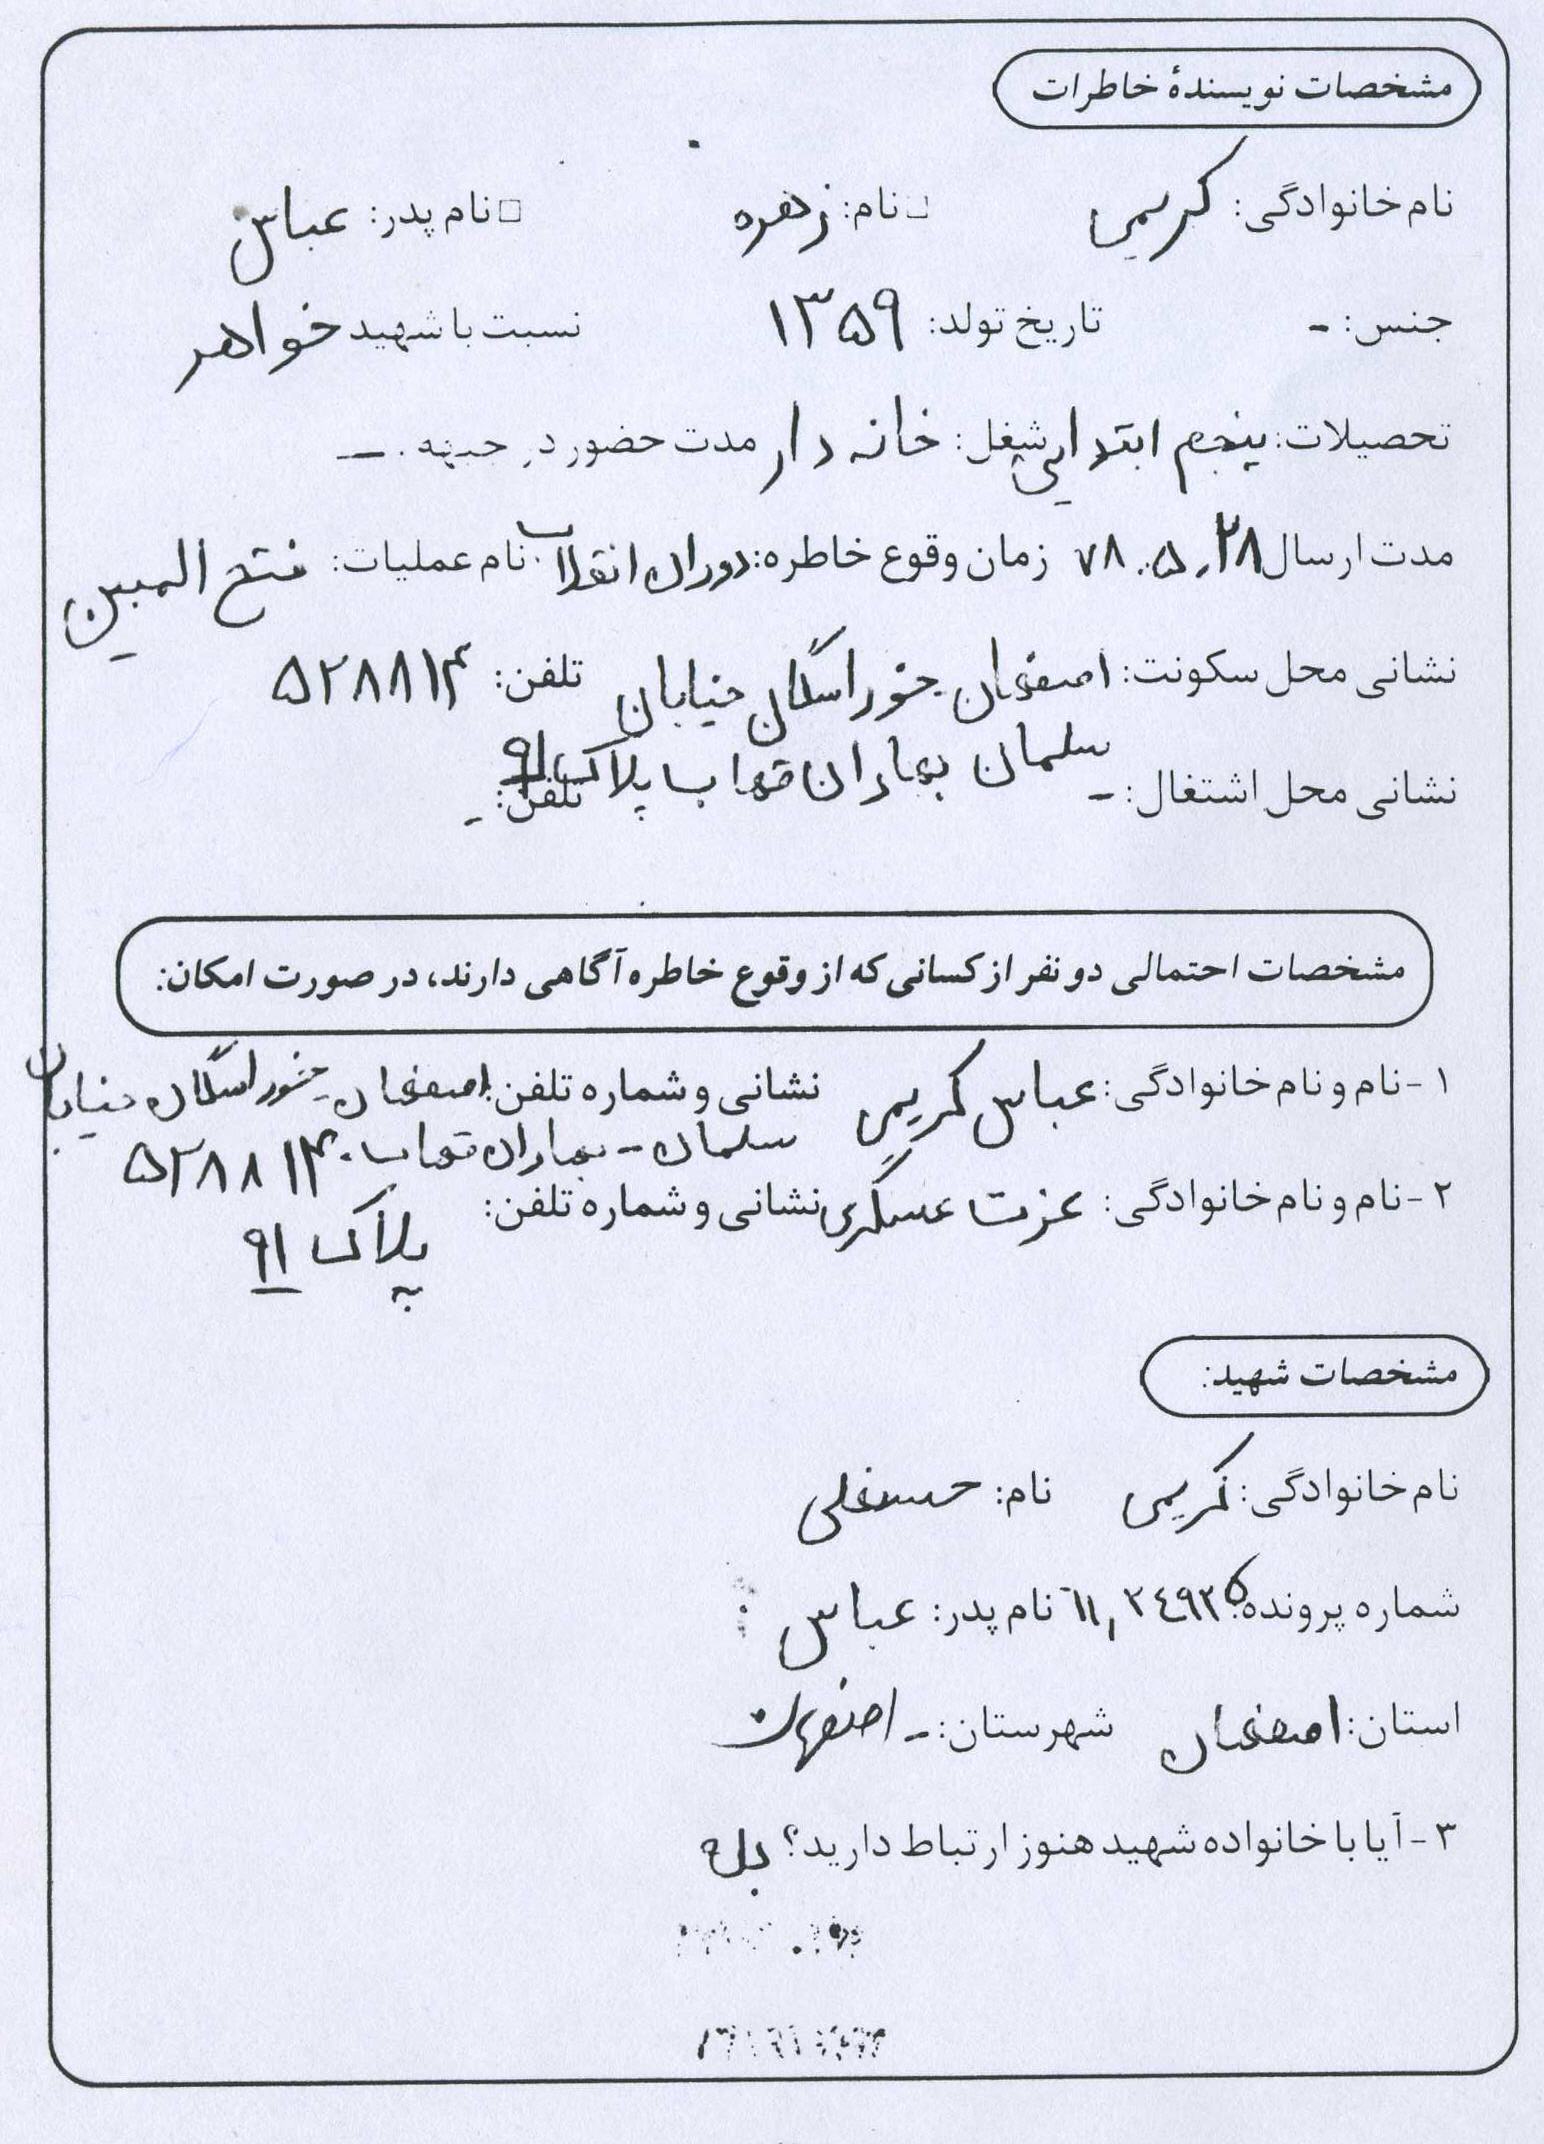 مشخصات نویسندهٔ خاطرات
نام خانوادگی: کریمی □ نام: زهره □ نام پدر: عباس
جنس: - تاریخ تولد: ۱۳۵۹ نسبت با شهید خواهر
تحصیلات: پنجم ابتدایی شغل: خانه دار مدت حضور در جبهه: -
مدت ارسال ۷۸.۵.۲۸ زمان وقوع خاطره: دوران انقلاب نام عملیات: فتح المبین
نشانی محل سکونت: اصفهان خوراسگان خیابان تلفن: ۵۲۸۸۱۴
سلمان بهاران قهاب پلاک ۹۱
نشانی محل اشتغال: - تلفن: -
مشخصات احتمالی دو نفر از کسانی که از وقوع خاطره آگاهی دارند، در صورت امکان:
۱- نام و نام خانوادگی: عباس کریمی نشانی و شماره تلفن: اصفهان خوراسگان خیابان
سلمان - بهاران قهاب ۵۲۸۸۱۴
۲- نام و نام خانوادگی: عزت عسگری نشانی و شماره تلفن:
پلاک ۹۱
مشخصات شهید:
نام خانوادگی: کریمی نام: حسنعلی
شماره پرونده: نام پدر: عباس
استان: اصفهان شهرستان: - اصفهان
۳- آیا با خانواده شهید هنوز ارتباط دارید؟ بله